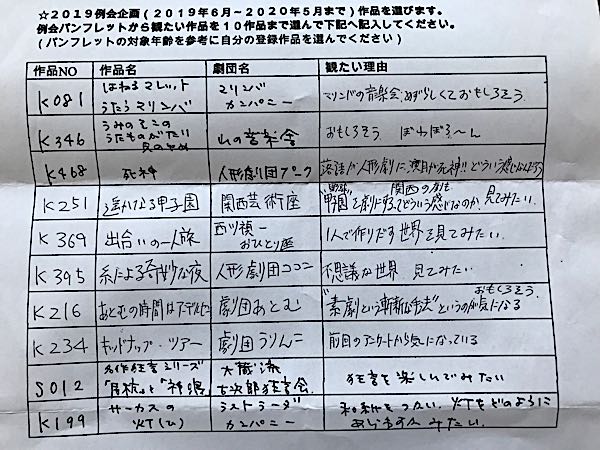 ☆2019例会企画(2019年6月~2020年5月まで)作品を選びます。
例会パンフレットから観たい作品を10作品まで選んで下記へ記入してください。
(パンフレットの対象年齢を参考に自分の登録作品を選んでください)
作品NO 作品名 劇団名 観たい理由
K081 はねるマレット うたうマリンバ マリンバ カンパニー マリンバの音楽会、めずらしくておもしろそう
K346 うみのそこの うたものがたり 山の音楽舎 おもしろそう ぼわぼろ〜ん
K468 死神 人形劇団プーク 落語が人形劇に、演目が死神!!どういう感じなんだろう
K251 遥かなる甲子園 関西芸術座 関西の劇 見てみたい。
K369 出合いの一人旅 西ツ領一 おひとり座 1人で作りだす世界を見てみたい。
K395 糸による奇妙な夜 人形劇団ココン 不思議な世界 見てみたい
K216 あともの時間はアンデルセン 劇団あとむ おもしろそう "素劇という斬新な手法"というのが気になる
K234 キッドナップ・ツアー 劇団うりんこ 前回のアンケートから気になっている
S012 名作狂言シリーズ 大蔵流 吉次郎狂言会 狂言を楽しんでみたい
K199 サーカスの灯(ひ) ストラーダ カンパニー 灯をどのように みたい。